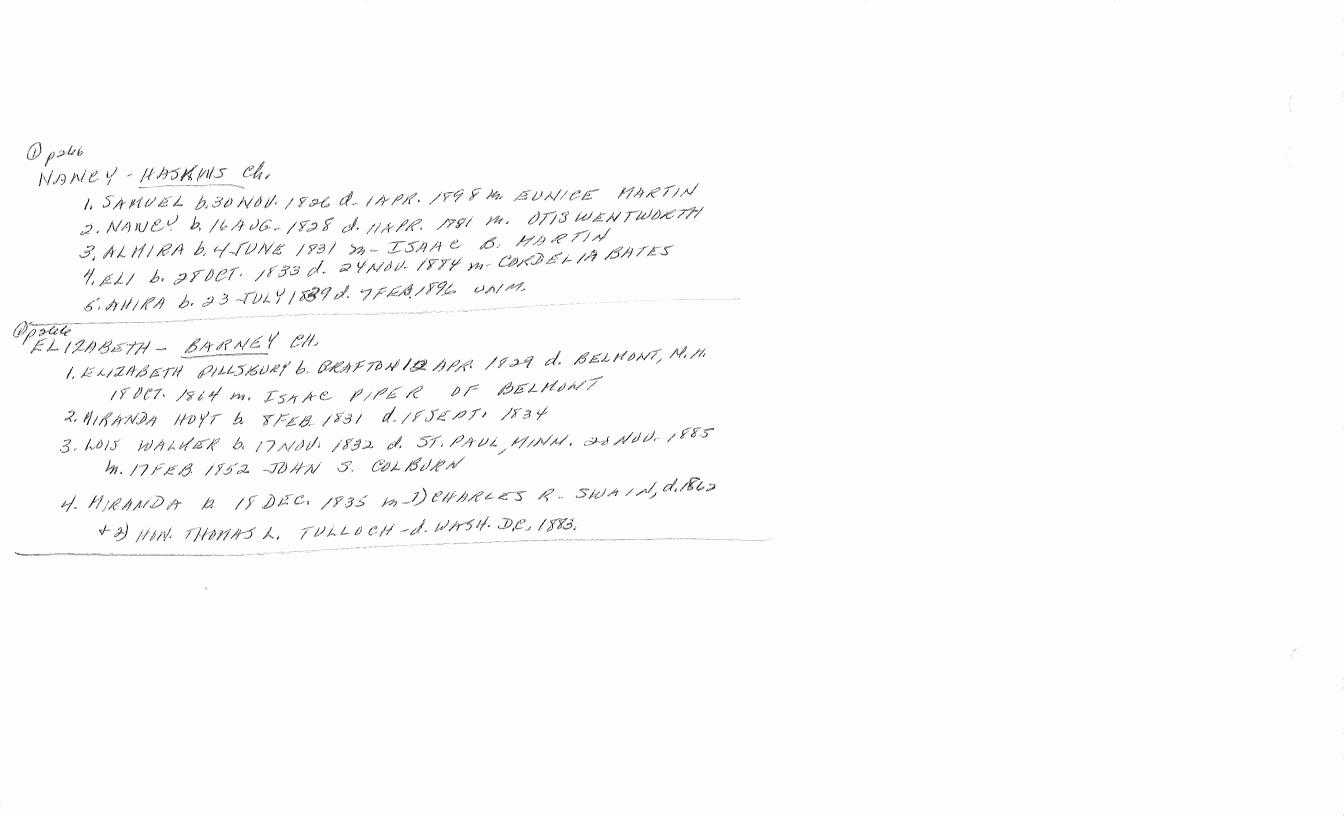 ① p266
NANCY - HASKINS Ch.
1. SAMUEL b. 30 NOV. 1826 d. 1 APR. 1898 m. EUNICE MARTIN
2. NANCY b. 16 AUG. 1828 d. 11 APR. 1781 m. OTIS WENTWORTH
3. ALMIRA b. 4 JUNE 1831 m - ISAAC B. MARTIN
4. ELI b. 28 OCT. 1833 d. 24 NOV. 1884 m. CORDELIA BATES
6. AHIRA b. 23 JULY 1839 d. 7 FEB. 1896 UNIM.
① p266
ELIZABETH - BARNEY CH.
1. ELIZABETH PILLSBURY b. GRAFTON 12 APR. 1829 d. BELMONT, N.H.
18 OCT. 1864 m. ISAAC PIPER OF BELMONT
2. MIRANDA HOYT b 8 FEB. 1831 d. 18 SEPT. 1834
3. LOIS WALKER b. 17 NOV. 1832 d. ST. PAUL, MINN. 20 NOV. 1885
m. 17 FEB 1852 JOHN S. COLBURN
4. MIRANDA b. 18 DEC. 1835 m - 1) CHARLES R. SWAIN, d. 1862
+ 2) HON. THOMAS L. TULLOCH - d. WASH. D.C. 1883.